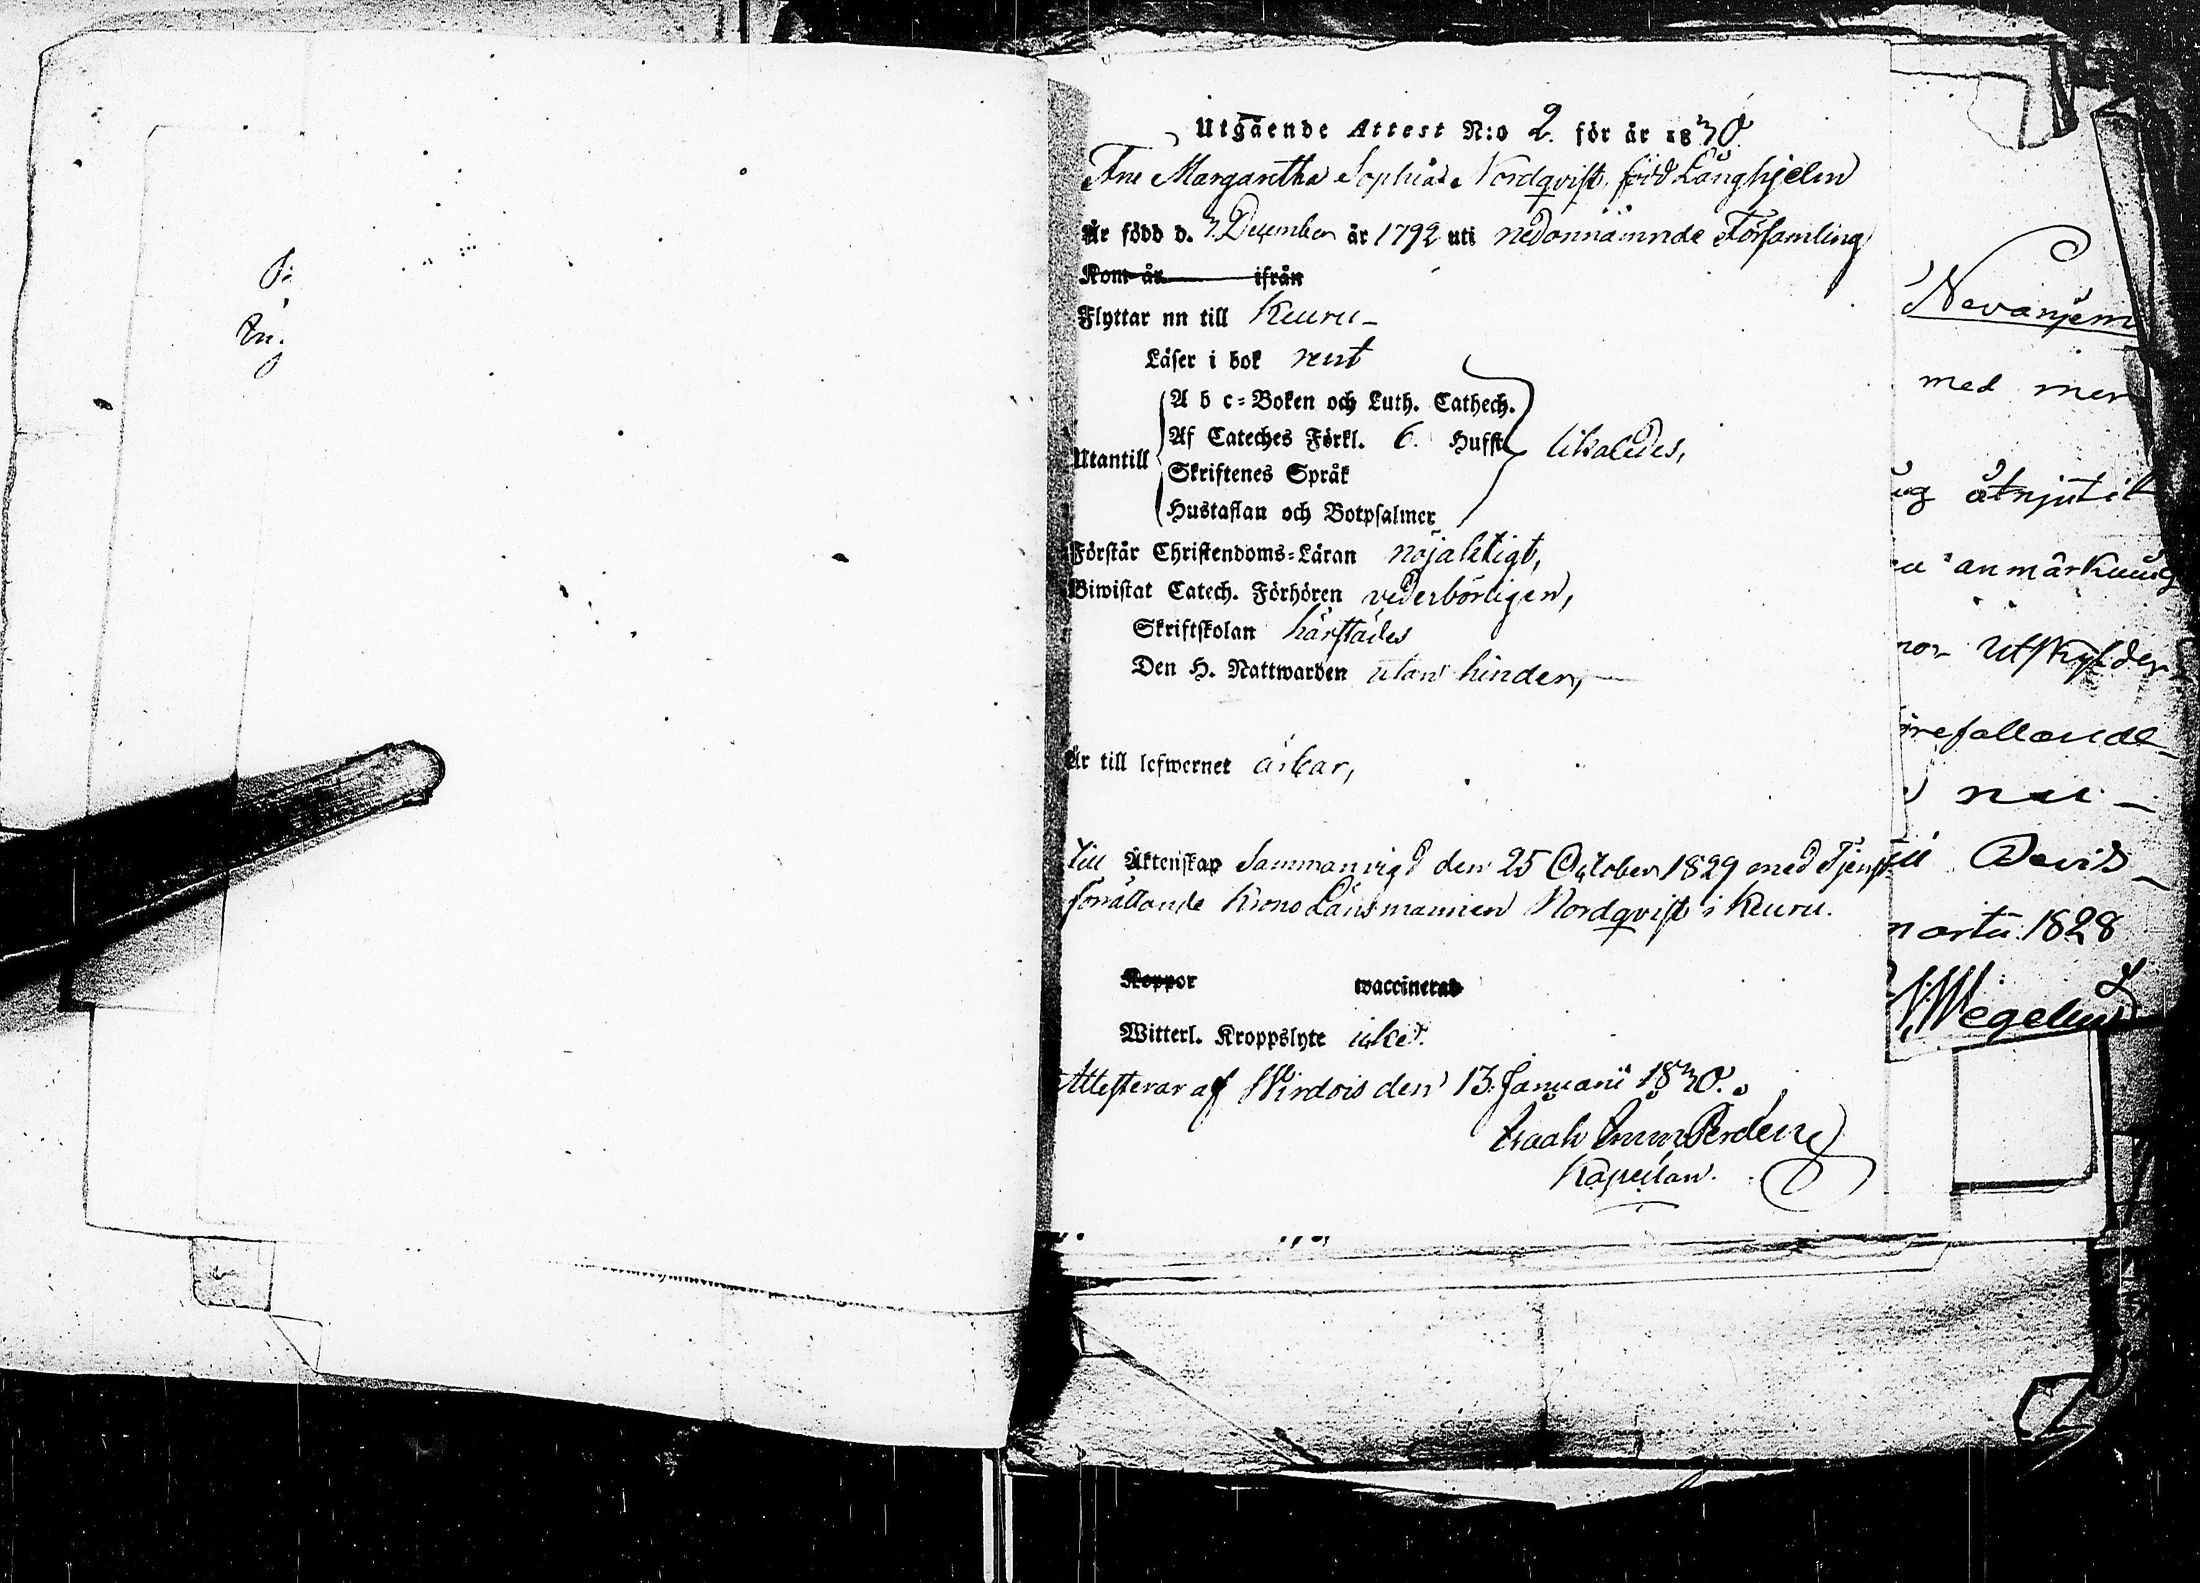 Utgående Attest N:o 2. för år 1830.
Fru Margaretha Sophia Nordqvist, född Länghjelm
Är född d. 3. December år 1792 uti nedannämnde Församling
Kom år ifrån
Flyttar nn till Keuru
Läser i bok rent
A b c-Boken och Luth. Cathech.
Af Cateches Förkl. 6. Hufst.
likaledes,
Utantill
Skriftenes Språk
Hustaflan och Botpsalmer
Förstår Christendoms-Läran nöjaktigt,
Biwistat Catech. Förhören vederbörligen,
Skriftskolan härstädes
Den H. Nattwarden utan hinder,
Är till lefwernet ärbar,
Till Äktenskap Sammanvigd den 25 October 1829 med Tjenst
förrättande Krono Länsmannen Nordqvist i Keuru.
Koppor waccinerad
Witterl. Kroppslyte icke.
Attesterar af Wirdois den 13. Januarii 1830.
Isaak Perden
Kapellan.
med
åtnjutit
anmärkning
utskylder
nu
Davids
martii 1828
Wegelius